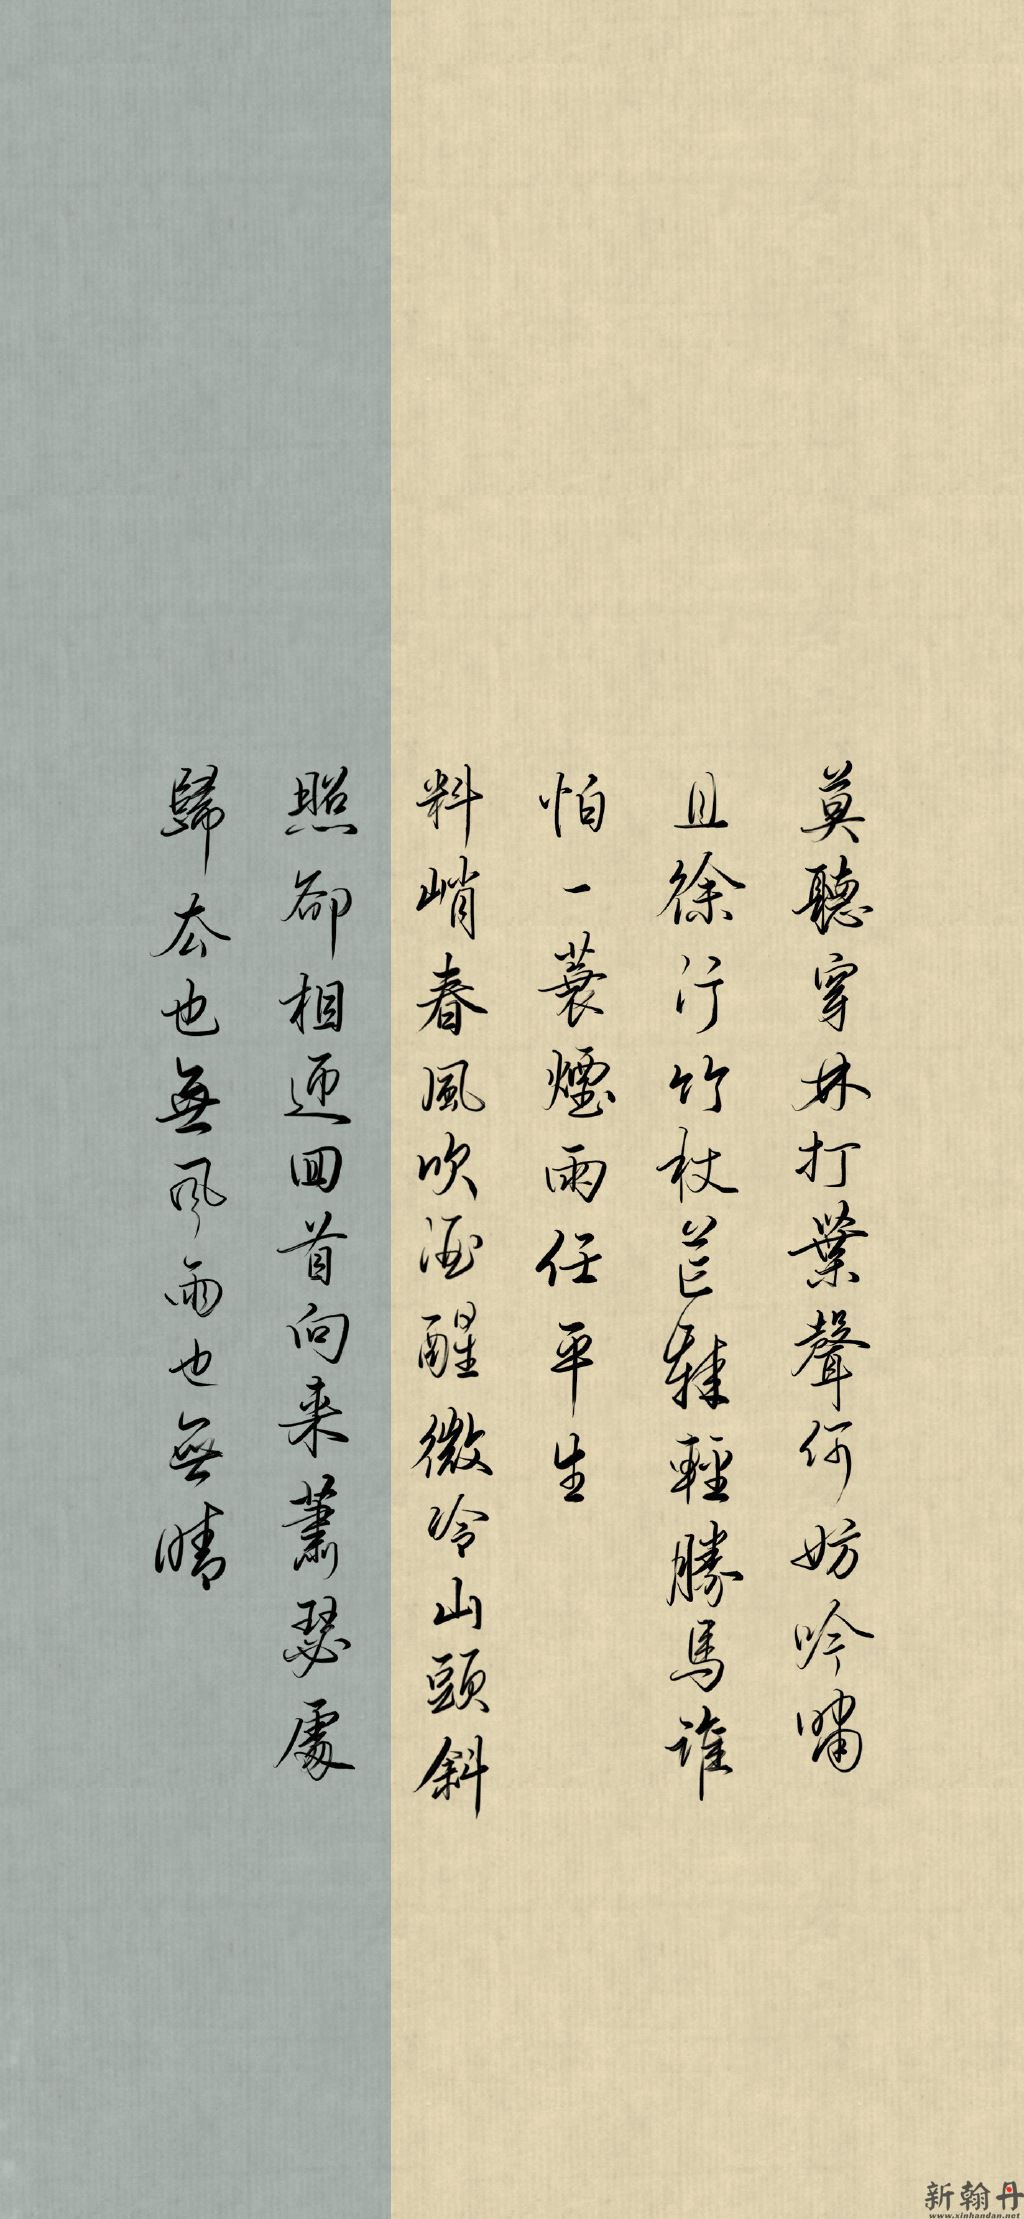 莫聽穿林打葉聲何妨吟嘯
且徐行竹杖芒鞋輕勝馬誰
怕一蓑煙雨任平生
料峭春風吹酒醒微冷山頭斜
照卻相迎回首向来蕭瑟處
歸去也無風雨也無晴
新翰丹
www.xinhandan.net